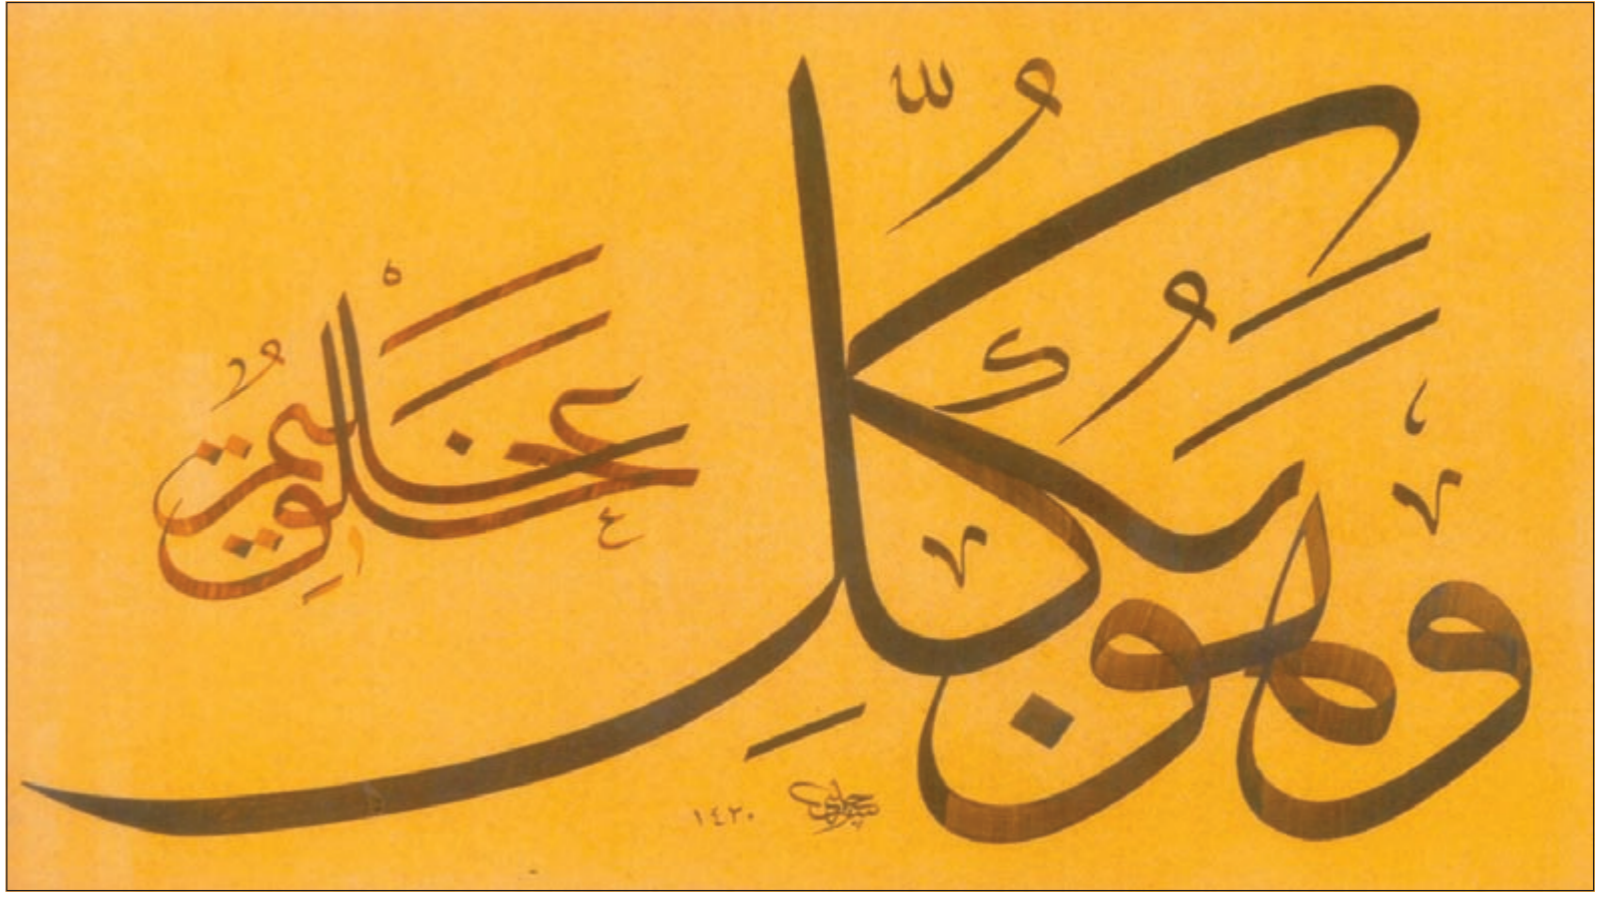 وَهُوَ بِكُلِّ خَلْقٍ عَلِيمٌ
١٤٢٠